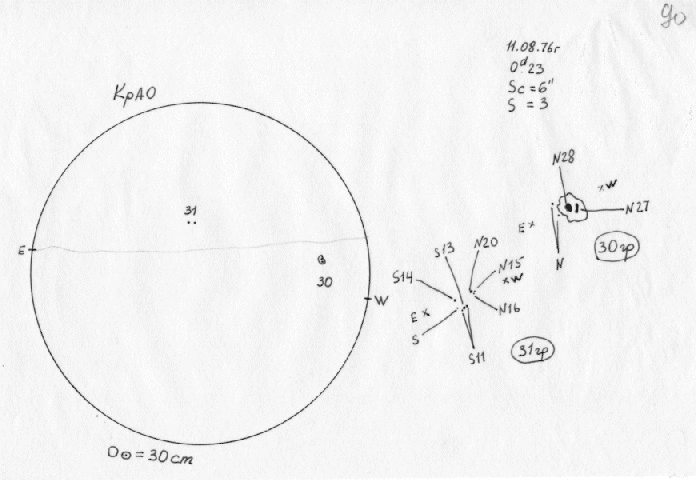 до
11.08.76г
0ᵈ.23
Sc = 6"
S = 3
КрАО
31
E
30
W
D⊙ = 30 cm
N28
×W
N27
E×
N
30гр
S13
N20
N15
×W
S14
E×
N16
S
S11
31гр